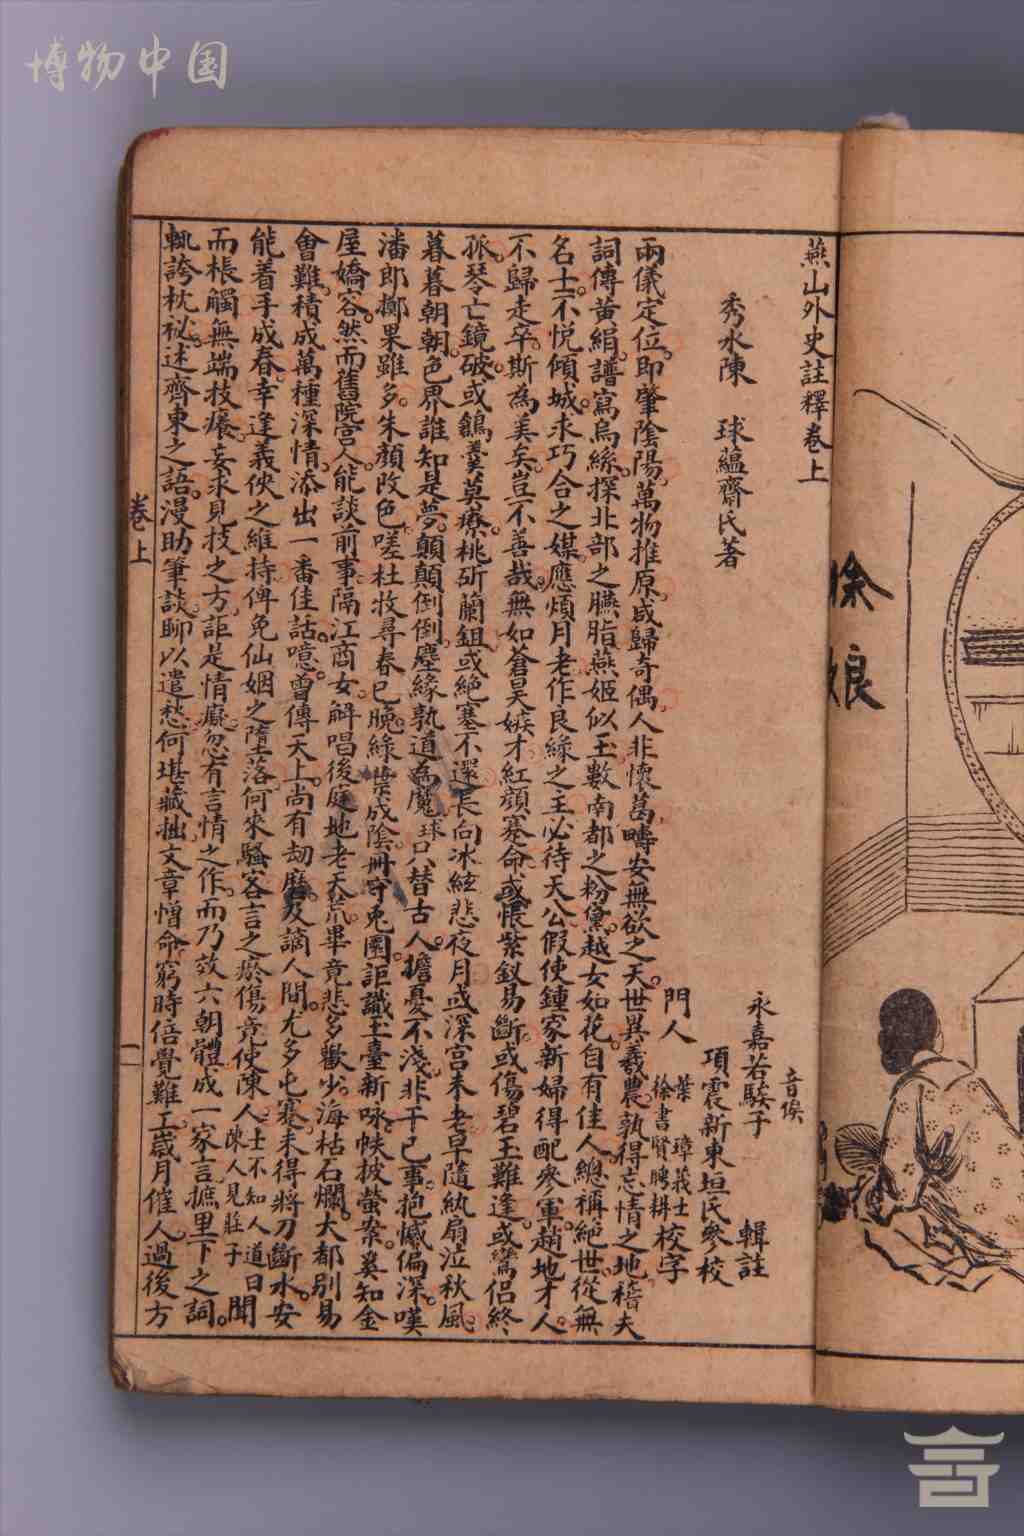 博物中国
徐娘
燕山外史註釋卷上
秀水陳 球蘊齋氏著
永嘉若騤子 輯註
音俟
項震新東垣氏參校
門人
葉 璋莪士
徐書賢聘耕
校字
兩儀定位即肇陰陽萬物推原咸歸奇偶人非懷葛疇安無欲之天世異羲農孰得忘情之地稽夫
詞傳黃絹譜寫烏絲探北部之臙脂燕姬似玉數南都之粉黛越女如花自有佳人總稱絕世從無
名士不悅傾城求巧合之媒應煩月老作良緣之主必待天公假使鍾家新婦得配參軍趙地才人
不歸走卒斯為美矣豈不善哉無如蒼昊嫉才紅顏蹇命或悵紫釵易斷或傷碧玉難逢或鸞侶終
孤琴亡鏡破或鶼羹莫療桃斫蘭鉏或絕塞不還長向冰絃悲夜月或深宮未老早隨紈扇泣秋風
暮暮朝朝色界誰知是夢顛顛倒倒塵緣孰道為魔球只替古人擔憂不淺非干己事抱憾偏深嘆
潘郎擲果雖多朱顏改色嗟杜牧尋春已晚綠葉成陰冊守兔園詎識玉臺新咏帙披螢案奚知金
屋嬌容然而舊院宮人能談前事隔江商女解唱後庭地老天荒畢竟悲多歡少海枯石爛大都別易
會難積成萬種深情添出一番佳話噫曾傳天上尚有劫磨及謫人間尤多屯蹇未得將刀斷水安
能着手成春幸逢義俠之維持俾免仙姻之墮落何來騷客言之瘀傷竟使陳人士不知人道日聞
陳人見莊子
而棖觸無端技癢妄求見技之方詎是情癡忽有言情之作而乃效六朝體成一家言摭里下之詞
輒誇枕祕述齊東之語漫助筆談聊以遣愁何堪藏拙文章憎命窮時倍覺難工歲月催人過後方
卷上
一